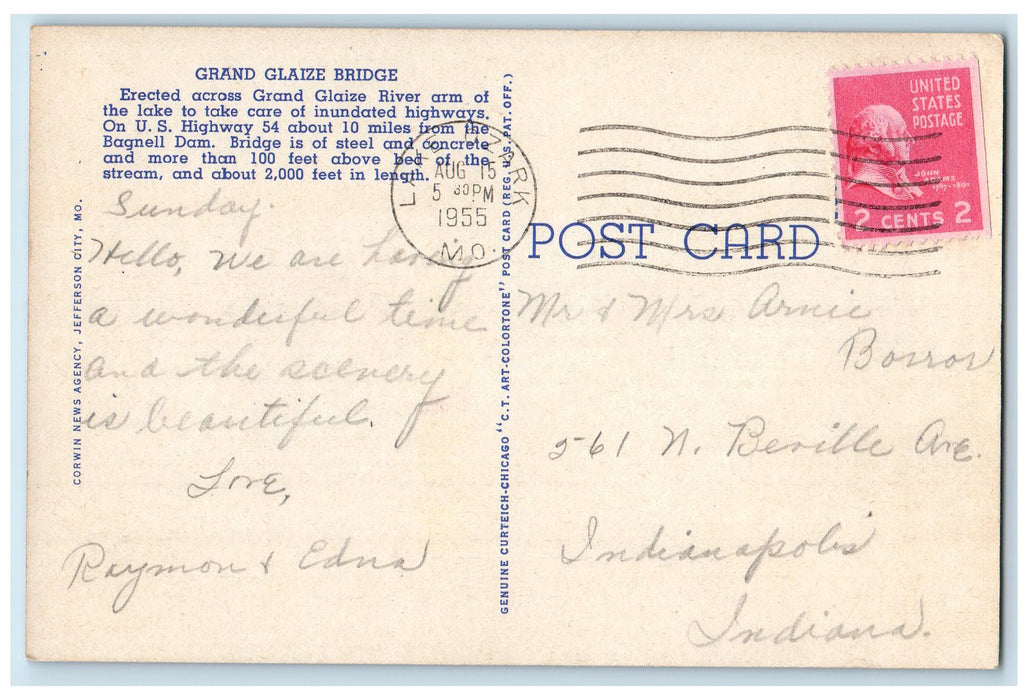 GRAND GLAIZE BRIDGE
Erected across Grand Glaize River arm of
the lake to take care of inundated highways.
On U. S. Highway 54 about 10 miles from the
Bagnell Dam. Bridge is of steel and concrete
and more than 100 feet above bed of the
stream, and about 2,000 feet in length.
Sunday.
Hello, We are having
a wonderful time
and the scenery
is beautiful.
Love,
Raymon & Edna
CORWIN NEWS AGENCY, JEFFERSON CITY, MO.
GENUINE CURTEICH-CHICAGO "C. T. ART-COLORTONE" POST CARD (REG. U. S. PAT. OFF.)
LAKE OZARK
AUG 15
5 30 PM
1955
MO.
UNITED
STATES
POSTAGE
JOHN
ADAMS
1797-1801
2 CENTS 2
POST CARD
Mr & Mrs Arnie
Borror
561 N. Beville Ave.
Indianapolis
Indiana.